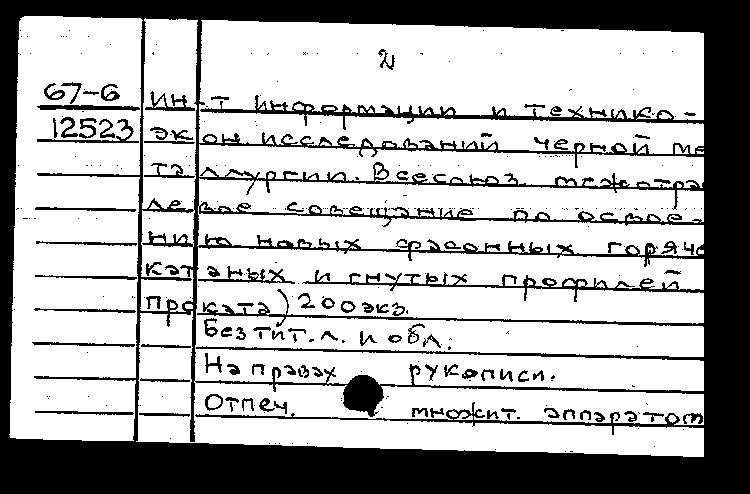 2
67-6 ин-т информации и технико-
12523 экон. исследований черной ме
таллургии. Всесоюз. межотра
левое совещание по освое-
нию новых фасонных горяче
катаных и гнутых профилей
проката) 200 экз.
Без тит. л. и обл.
На правах рукописи.
Отпеч. множит. аппаратом